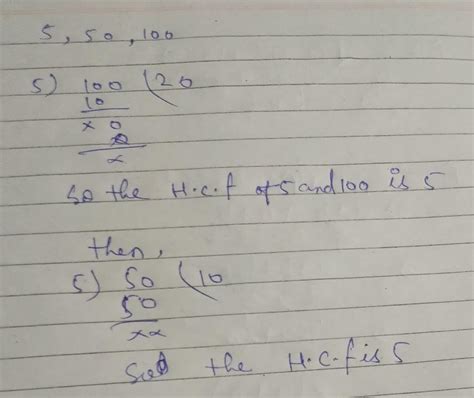 5, 50, 100
5) 100 (20
10
x 0
0
x
so the H.c.f of 5 and 100 is 5
then,
5) 50 (10
50
xx
the H.C.f is 5